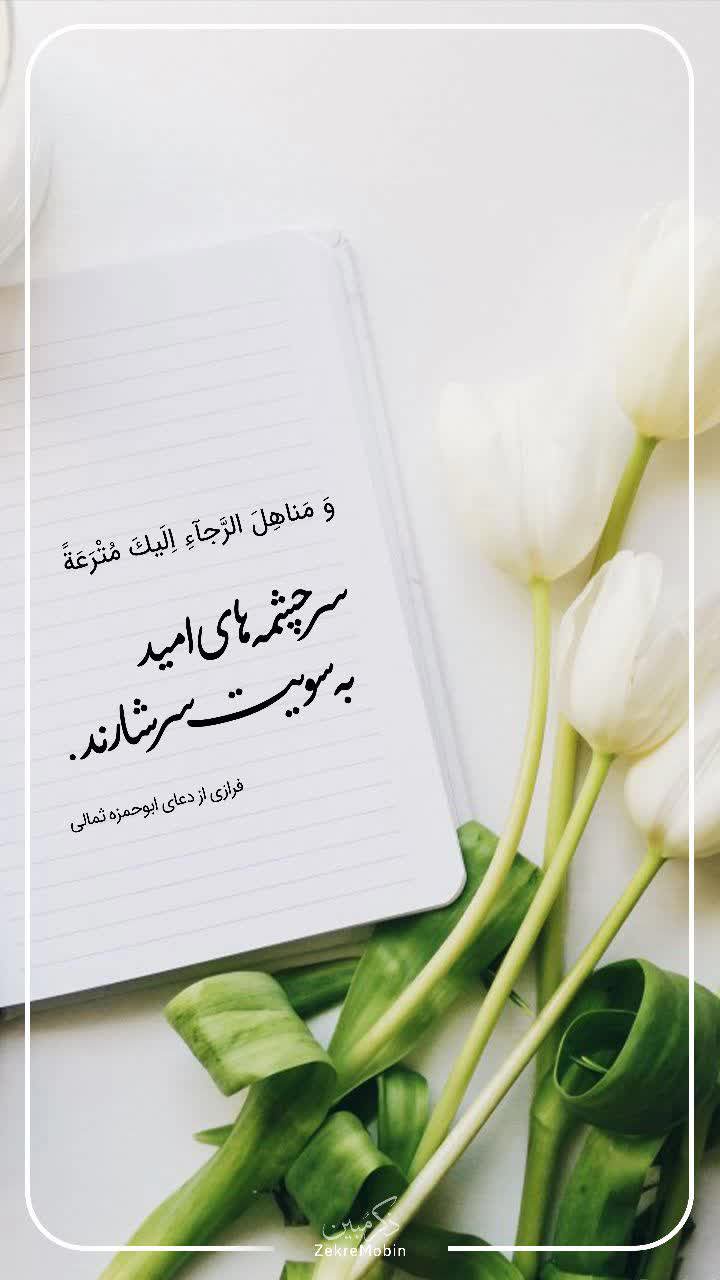 وَ مَناهِلَ الرَّجآءِ اِلَيكَ مُتْرَعَةً
سرچشمه‌های امید
به سویت سرشارند.
فرازی از دعای ابوحمزه ثمالی
ذکر مُبین
ZekreMobin